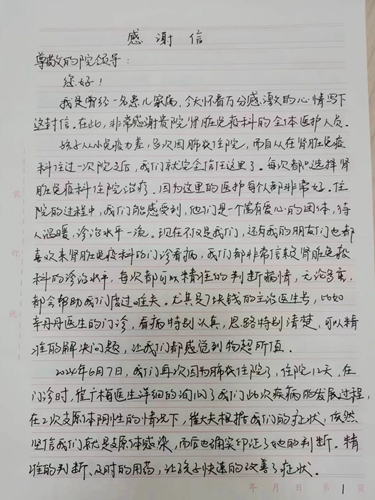 感谢信
尊敬的院领导:
您好!
我是曾经一名患儿家属,今天怀着万分感激的心情写下
这封信。在此,非常感谢贵院肾脏免疫科的全体医护人员。
孩子从小免疫力差,多次因肺炎住院,而自从在肾脏免疫
科住过一次院之后,我们就完全信任这里了。每次都选择肾
脏免疫科住院治疗,因为这里的医护每个人都非常好。住
院的过程中,我们能感受到,他们是一个富有爱心的团体,待
人温暖,诊治水平一流。现在不仅是我们,还有我的朋友们也都
喜欢来肾脏免疫科的门诊看病,我们都非常信来肾脏免疫
科的诊治水平,每次都可以精准的判断病情,无论多重,
都会帮助我们度过难关。尤其是7块钱的主治医生号,比如
车丹丹医生的门诊,看病特别认真,思路特别清楚,可以精
准的解决问题,让我们都感觉到物超所值。
2024年6月7日,我们再次因为肺炎住院了,住院12天,在
门诊时,崔广梅医生详细的询问了我们此次疾病的发展过程,
在2次支原体阴性的情况下,崔大夫根据我们的症状,依然
坚信我们就是支原体感染,而后也确实印证了她的判断。精
准的判断、及时的用药,让孩子快速的改善了症状。
年 月 日 第 1 页